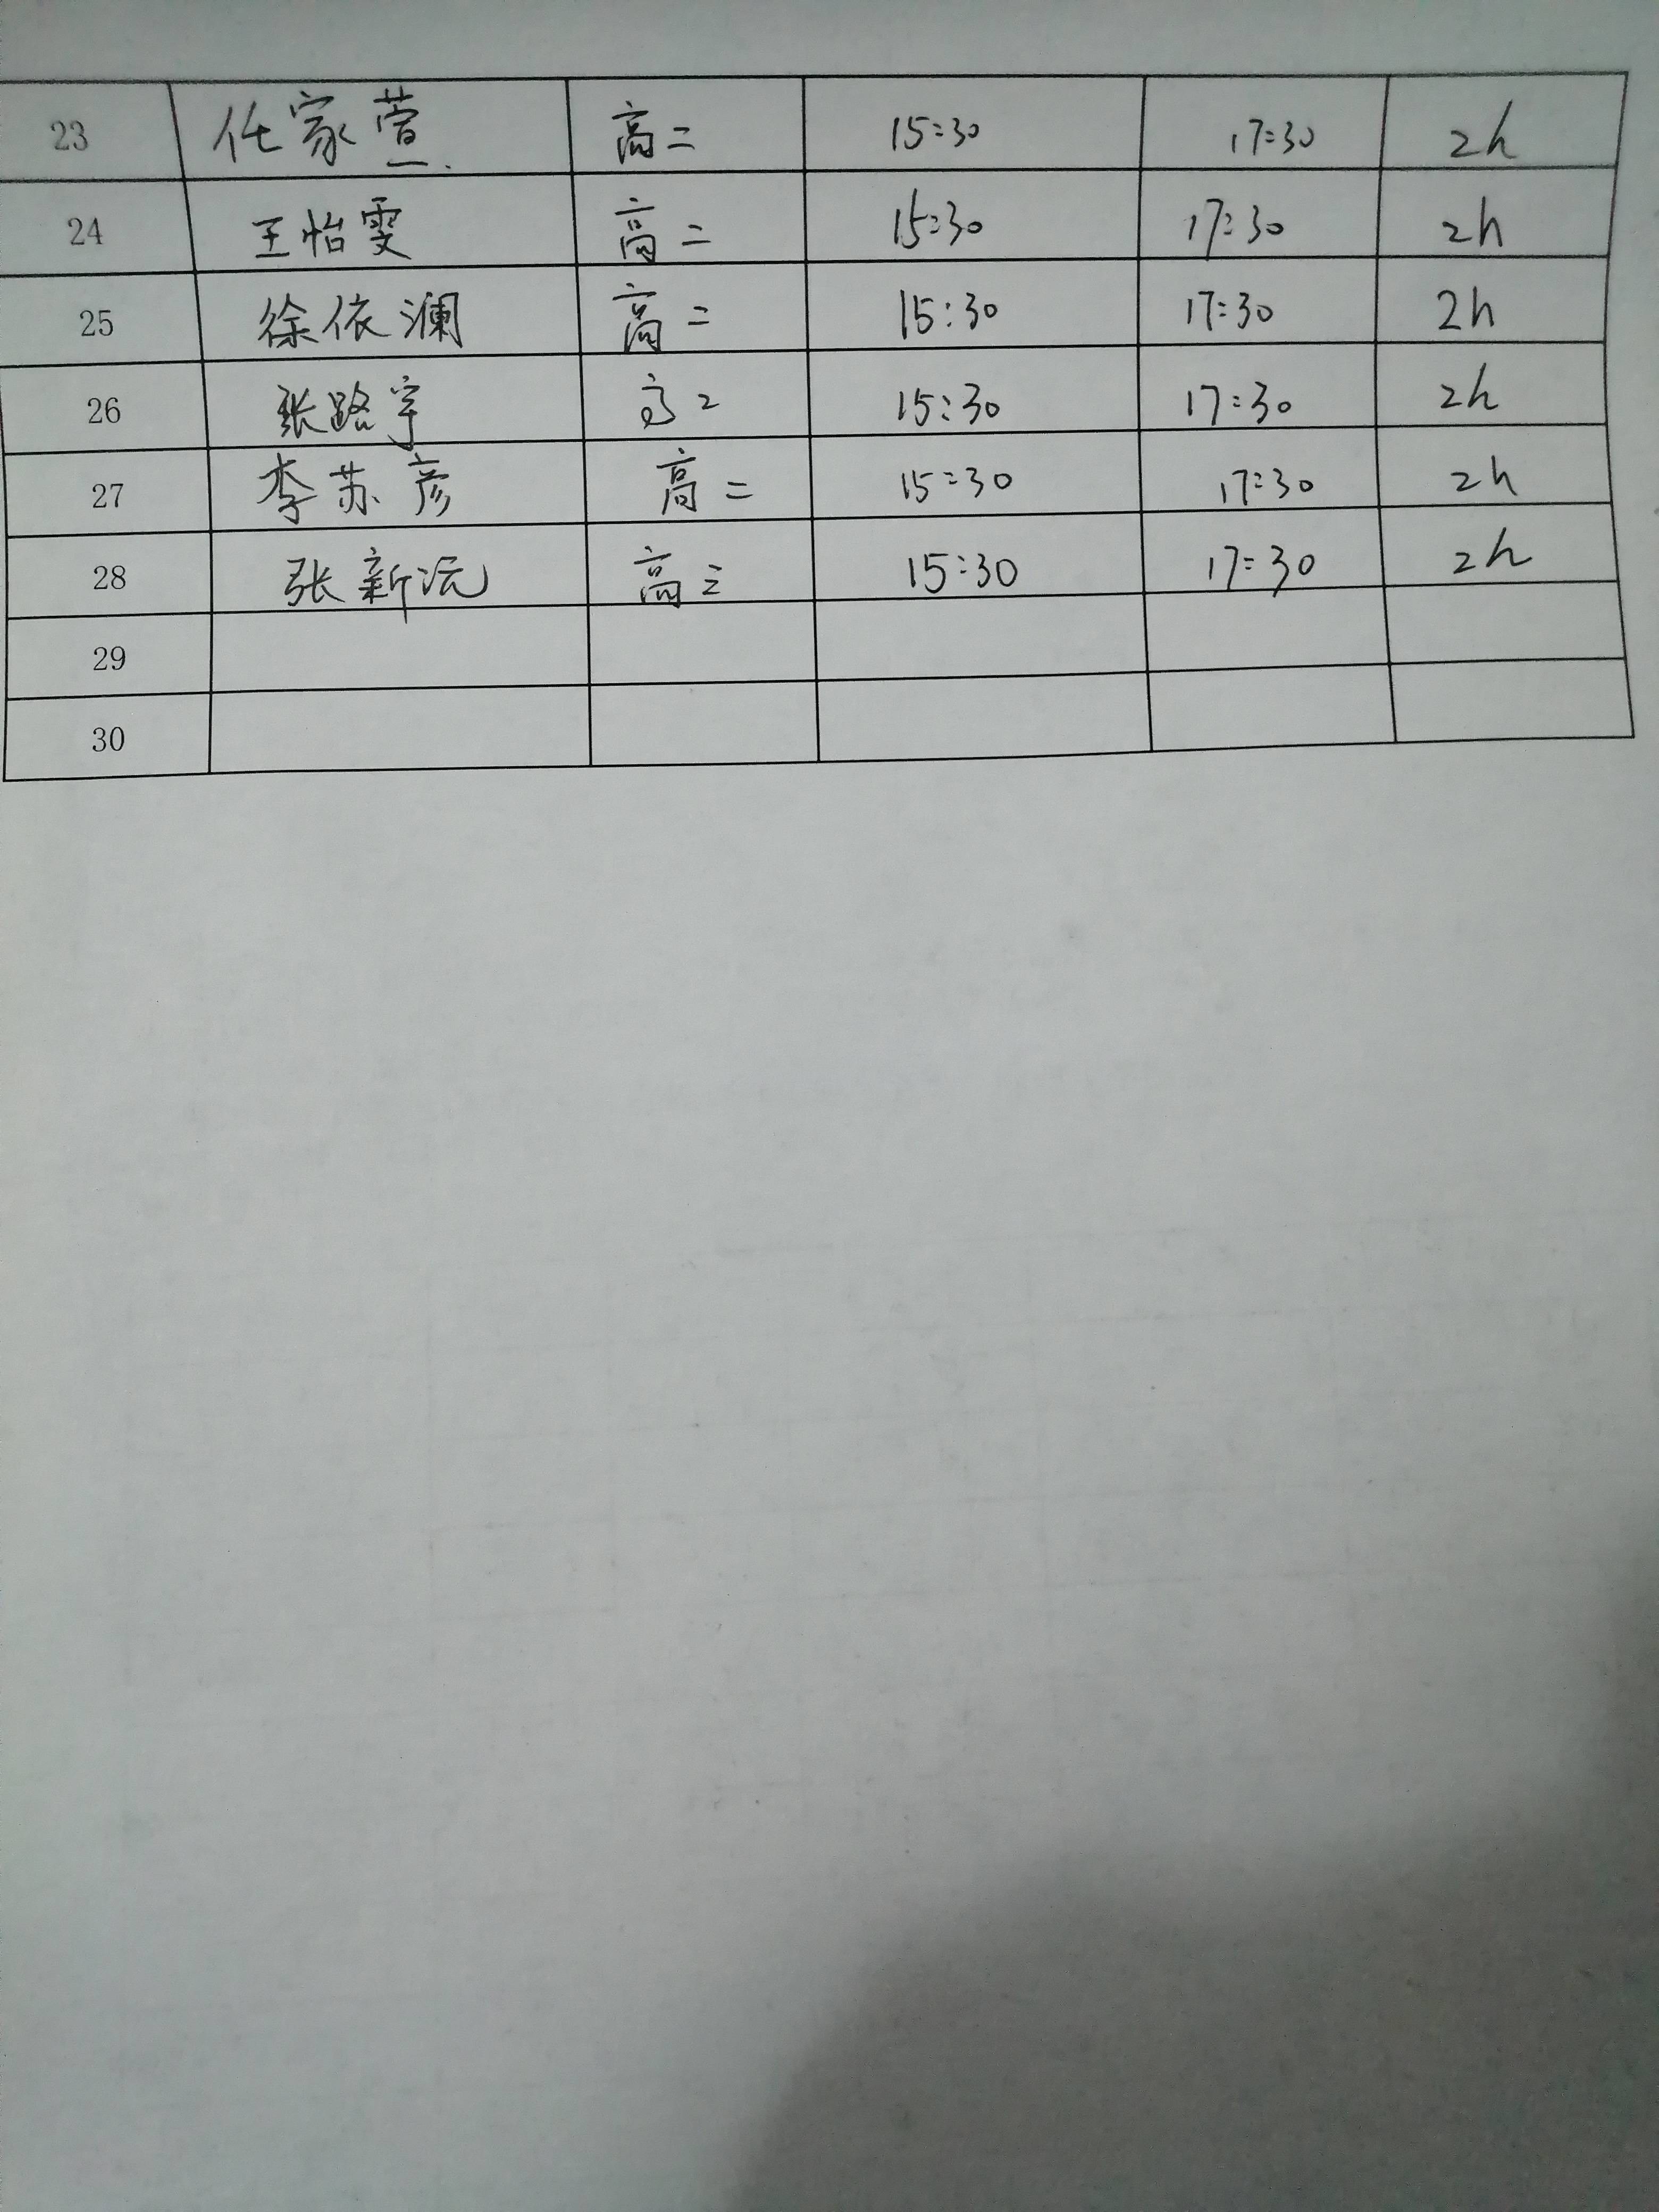 23 任家萱 高二 15:30 17:30 2h
24 王怡雯 高二 15:30 17:30 2h
25 徐依澜 高二 15:30 17:30 2h
26 张路宇 高2 15:30 17:30 2h
27 李苏彦 高二 15:30 17:30 2h
28 张新沅 高三 15:30 17:30 2h
29
30